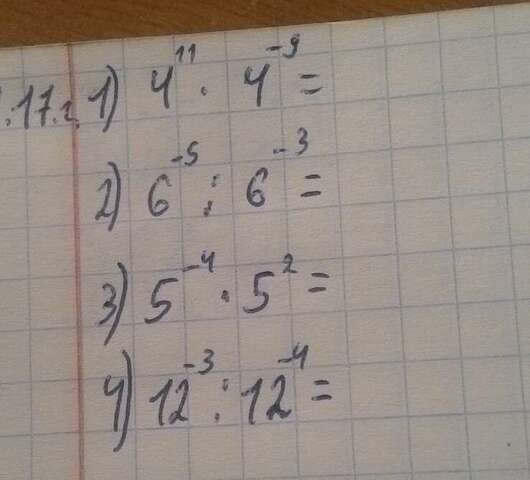 .17.2. 1) 4¹¹ · 4⁻⁹ =
2) 6⁻⁵ : 6⁻³ =
3) 5⁻⁴ · 5² =
4) 12⁻³ : 12⁻⁴ =